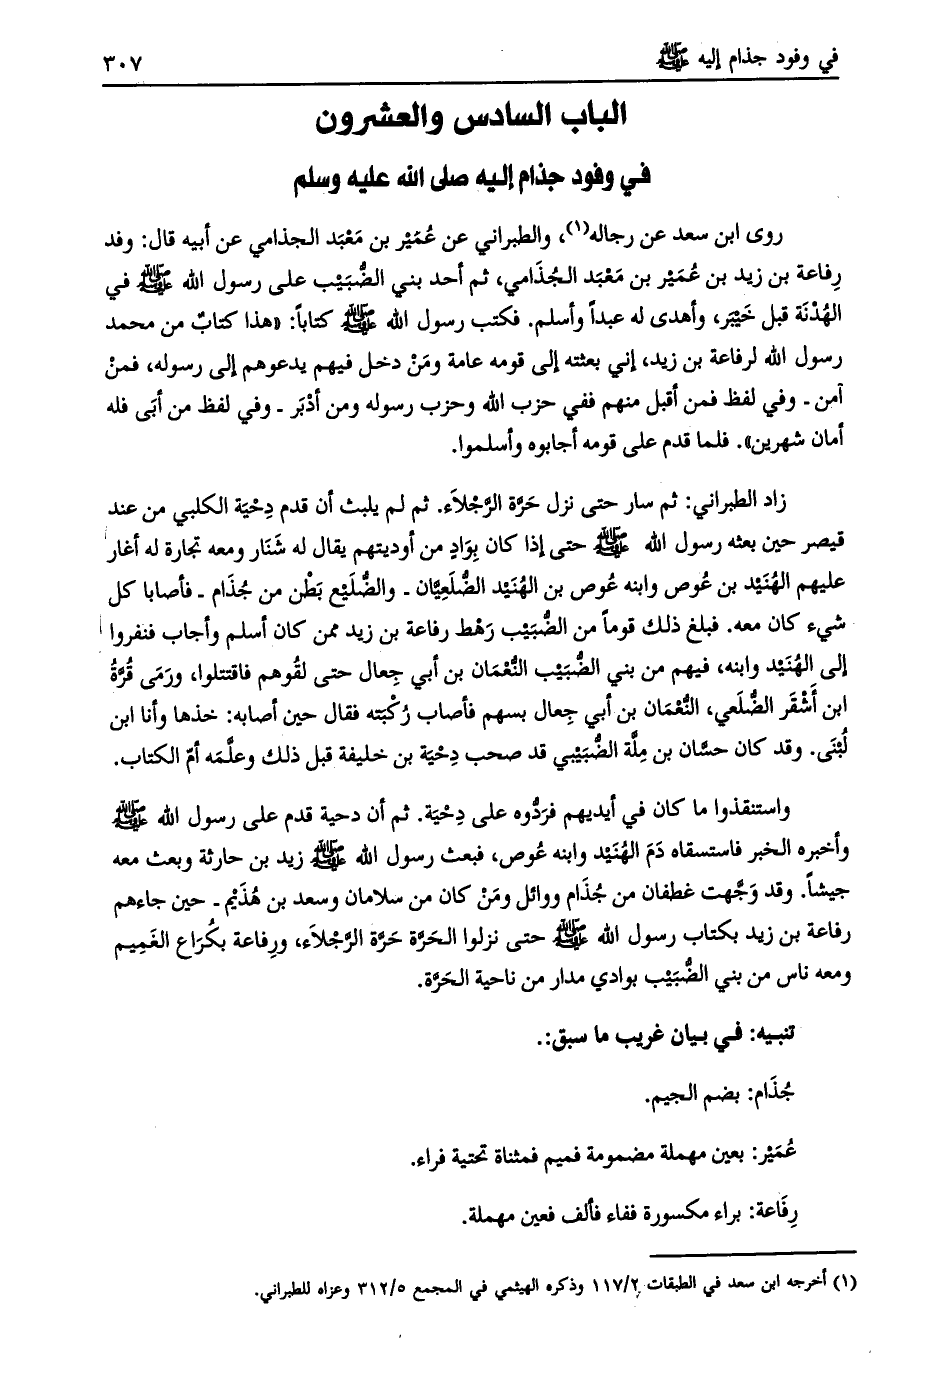 في وفود جذام إليه ﷺ ٣٠٧
الباب السادس والعشرون
في وفود جذام إليه صلى الله عليه وسلم
روى ابن سعد عن رجاله(١)، والطبراني عن عُمَيْر بن مَعْبَد الجذامي عن أبيه قال: وفد
رِفاعة بن زيد بن عُمَيْر بن مَعْبَد الجُذَامي، ثم أحد بني الضُّبَيْب على رسول الله ﷺ في
الهُدْنَة قبل خَيْبَر، وأهدى له عبداً وأسلم. فكتب رسول الله ﷺ كتاباً: «هذا كتابٌ من محمد
رسول الله لرفاعة بن زيد، إني بعثته إلى قومه عامة ومَنْ دخل فيهم يدعوهم إلى رسوله، فمنْ
آمن ـ وفي لفظ فمن أقبل منهم ففي حزب الله وحزب رسوله ومن أدْبَر ـ وفي لفظ من أبَى فله
أمان شهرين». فلما قدم على قومه أجابوه وأسلموا.
زاد الطبراني: ثم سار حتى نزل حَرَّة الرَّجْلاَء. ثم لم يلبث أن قدم دِحْيَة الكلبي من عند
قيصر حين بعثه رسول الله ﷺ حتى إذا كان بِوَادٍ من أوديتهم يقال له شَنَار ومعه تجارة له أغار
عليهم الهُنَيْد بن عُوص وابنه عُوص بن الهُنَيْد الضُّلَعِيَّان ـ والضُّلَيْع بَطْن من جُذَام ـ فأصابا كل
شيء كان معه. فبلغ ذلك قوماً من الضُبَيْب رَهْط رفاعة بن زيد ممن كان أسلم وأجاب فنفروا
إلى الهُنَيْد وابنه، فيهم من بني الضُّبَيْب النُّعْمَان بن أبي جِعال حتى لقُوهم فاقتتلوا، ورَمَى قُرَّةُ
ابن أَشْقَر الضُّلَعي، النُّعْمَان بن أبي جِعال بسهم فأصاب رُكْبَته فقال حين أصابه: خذها وأنا ابن
لُبْنَى. وقد كان حسَّان بن مِلَّة الضُّبَيْبي قد صحب دِحْيَة بن خليفة قبل ذلك وعلَّمه أمّ الكتاب.
واستنقذوا ما كان في أيديهم فرَدُّوه على دِحْيَة. ثم أن دحية قدم على رسول الله ﷺ
وأخبره الخبر فاستسقاه دَمَ الهُنَيْد وابنه عُوص، فبعث رسول الله ﷺ زيد بن حارثة وبعث معه
جيشاً. وقد وَجَّهت غطفان من جُذَام ووائل ومَنْ كان من سلامان وسعد بن هُذَيْم ـ حين جاءهم
رفاعة بن زيد بكتاب رسول الله ﷺ حتى نزلوا الحَرَّة حَرَّة الرَّجْلاَء، ورِفاعة بكُرَاع الغَمِيم
ومعه ناس من بني الضُّبَيْب بوادي مدار من ناحية الحَرَّة.
تنبيه: في بيان غريب ما سبق:.
جُذَام: بضم الجيم.
عُمَيْر: بعين مهملة مضمومة فميم فمثناة تحتية فراء.
رِفَاعة: براء مكسورة ففاء فألف فعين مهملة.
(١) أخرجه ابن سعد في الطبقات ١١٧/٢ وذكره الهيثمي في المجمع ٣١٢/٥ وعزاه للطبراني.